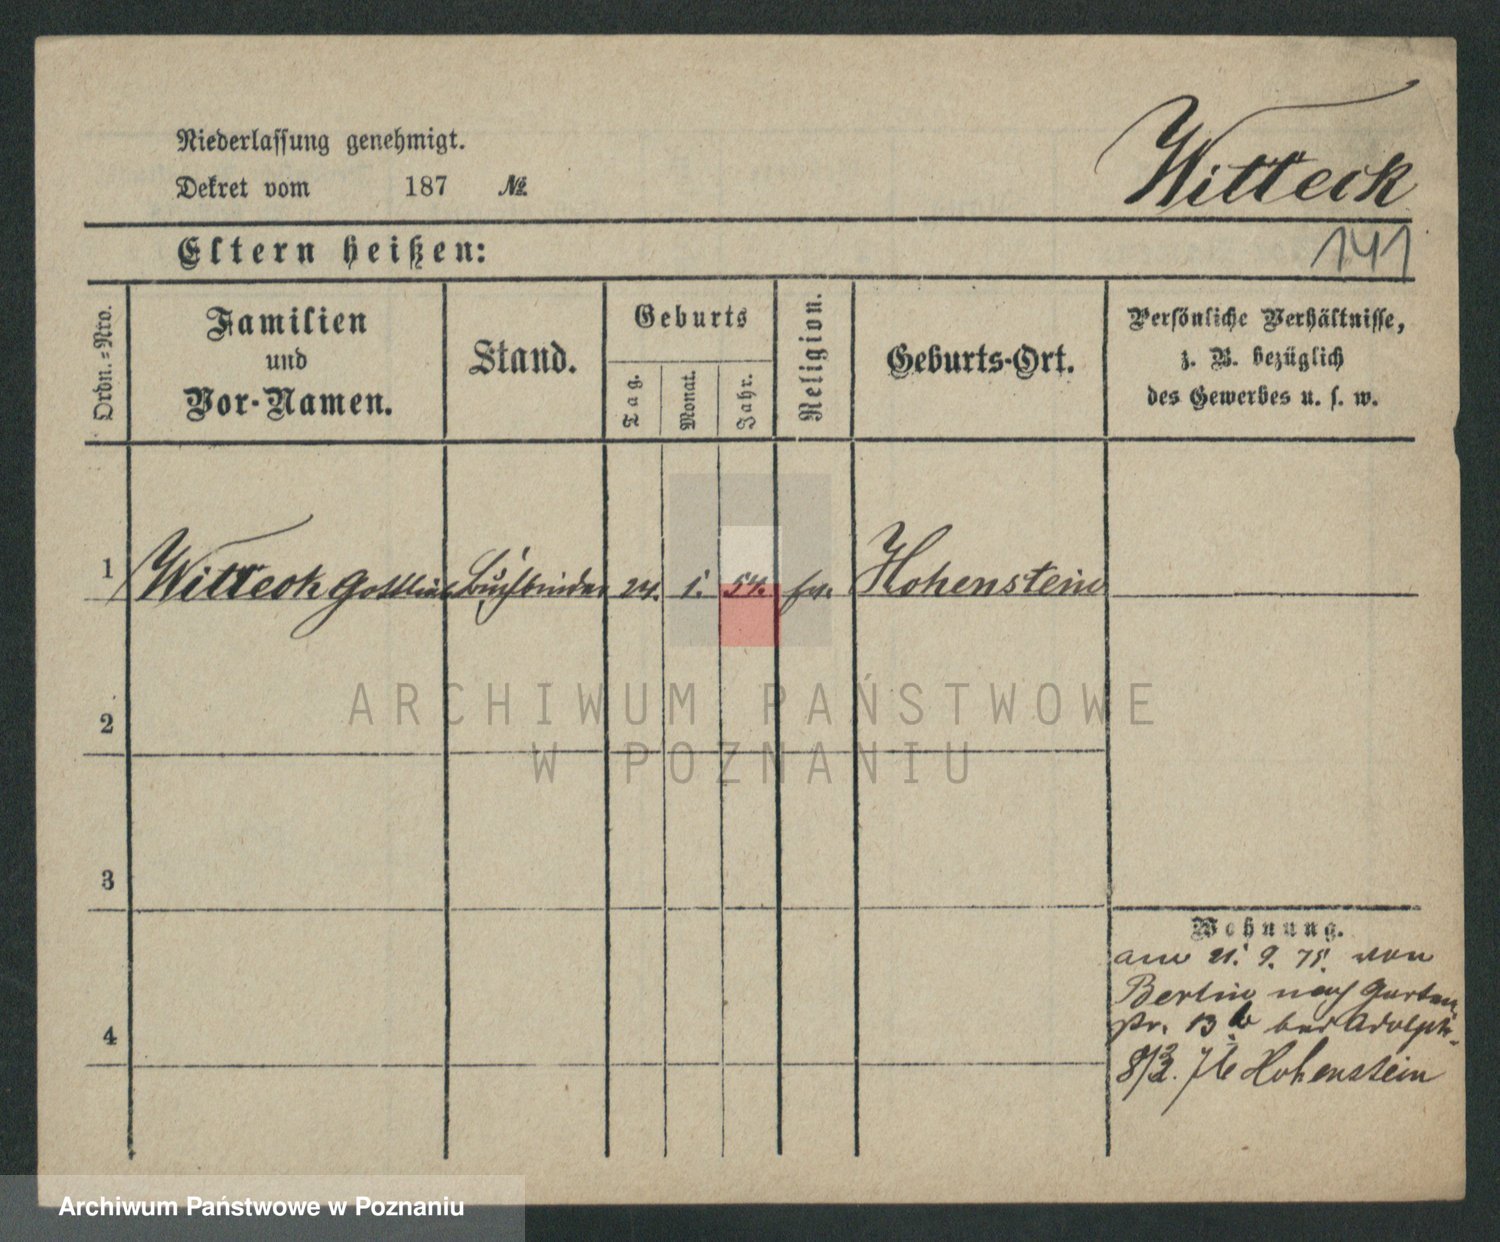 Niederlassung genehmigt.
Dekret vom 187 №
Witteck
141
Eltern heißen:
Ordn.=Nro.
Familien
und
Vor-Namen.
Stand.
Geburts
Tag.
Monat.
Jahr.
Religion.
Geburts-Ort.
Persönliche Verhältnisse,
z. B. bezüglich
des Gewerbes u. s. w.
1 Witteck Gottlieb Buchbinder 24. 1. 54. ev. Hohenstein
ARCHIWUM PAŃSTWOWE
W POZNANIU
2
3
4
Wohnung.
am 21. 9. 75. von
Berlin nach Garten
str. 13 b bei Adolph
8/3. 76 Hohenstein
Archiwum Państwowe w Poznaniu